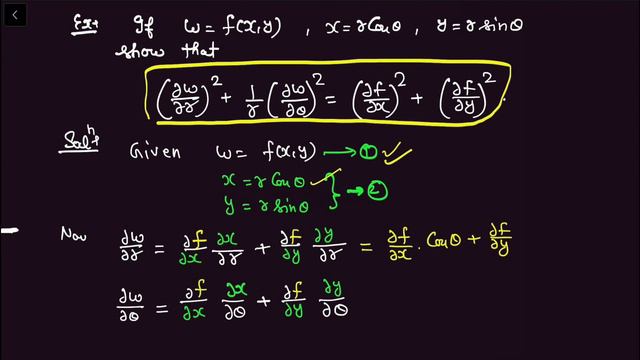 Ex+ If w = f(x,y) , x = r Cosθ , y = r sinθ
show that
(∂w/∂r)² + 1/r (∂w/∂θ)² = (∂f/∂x)² + (∂f/∂y)².
Solⁿ+ Given w = f(x,y) → ① ✓
x = r Cosθ ✓
y = r sinθ } → ②
Now ∂w/∂r = ∂f/∂x ∂x/∂r + ∂f/∂y ∂y/∂r = ∂f/∂x · Cosθ + ∂f/∂y
∂w/∂θ = ∂f/∂x ∂x/∂θ + ∂f/∂y ∂y/∂θ